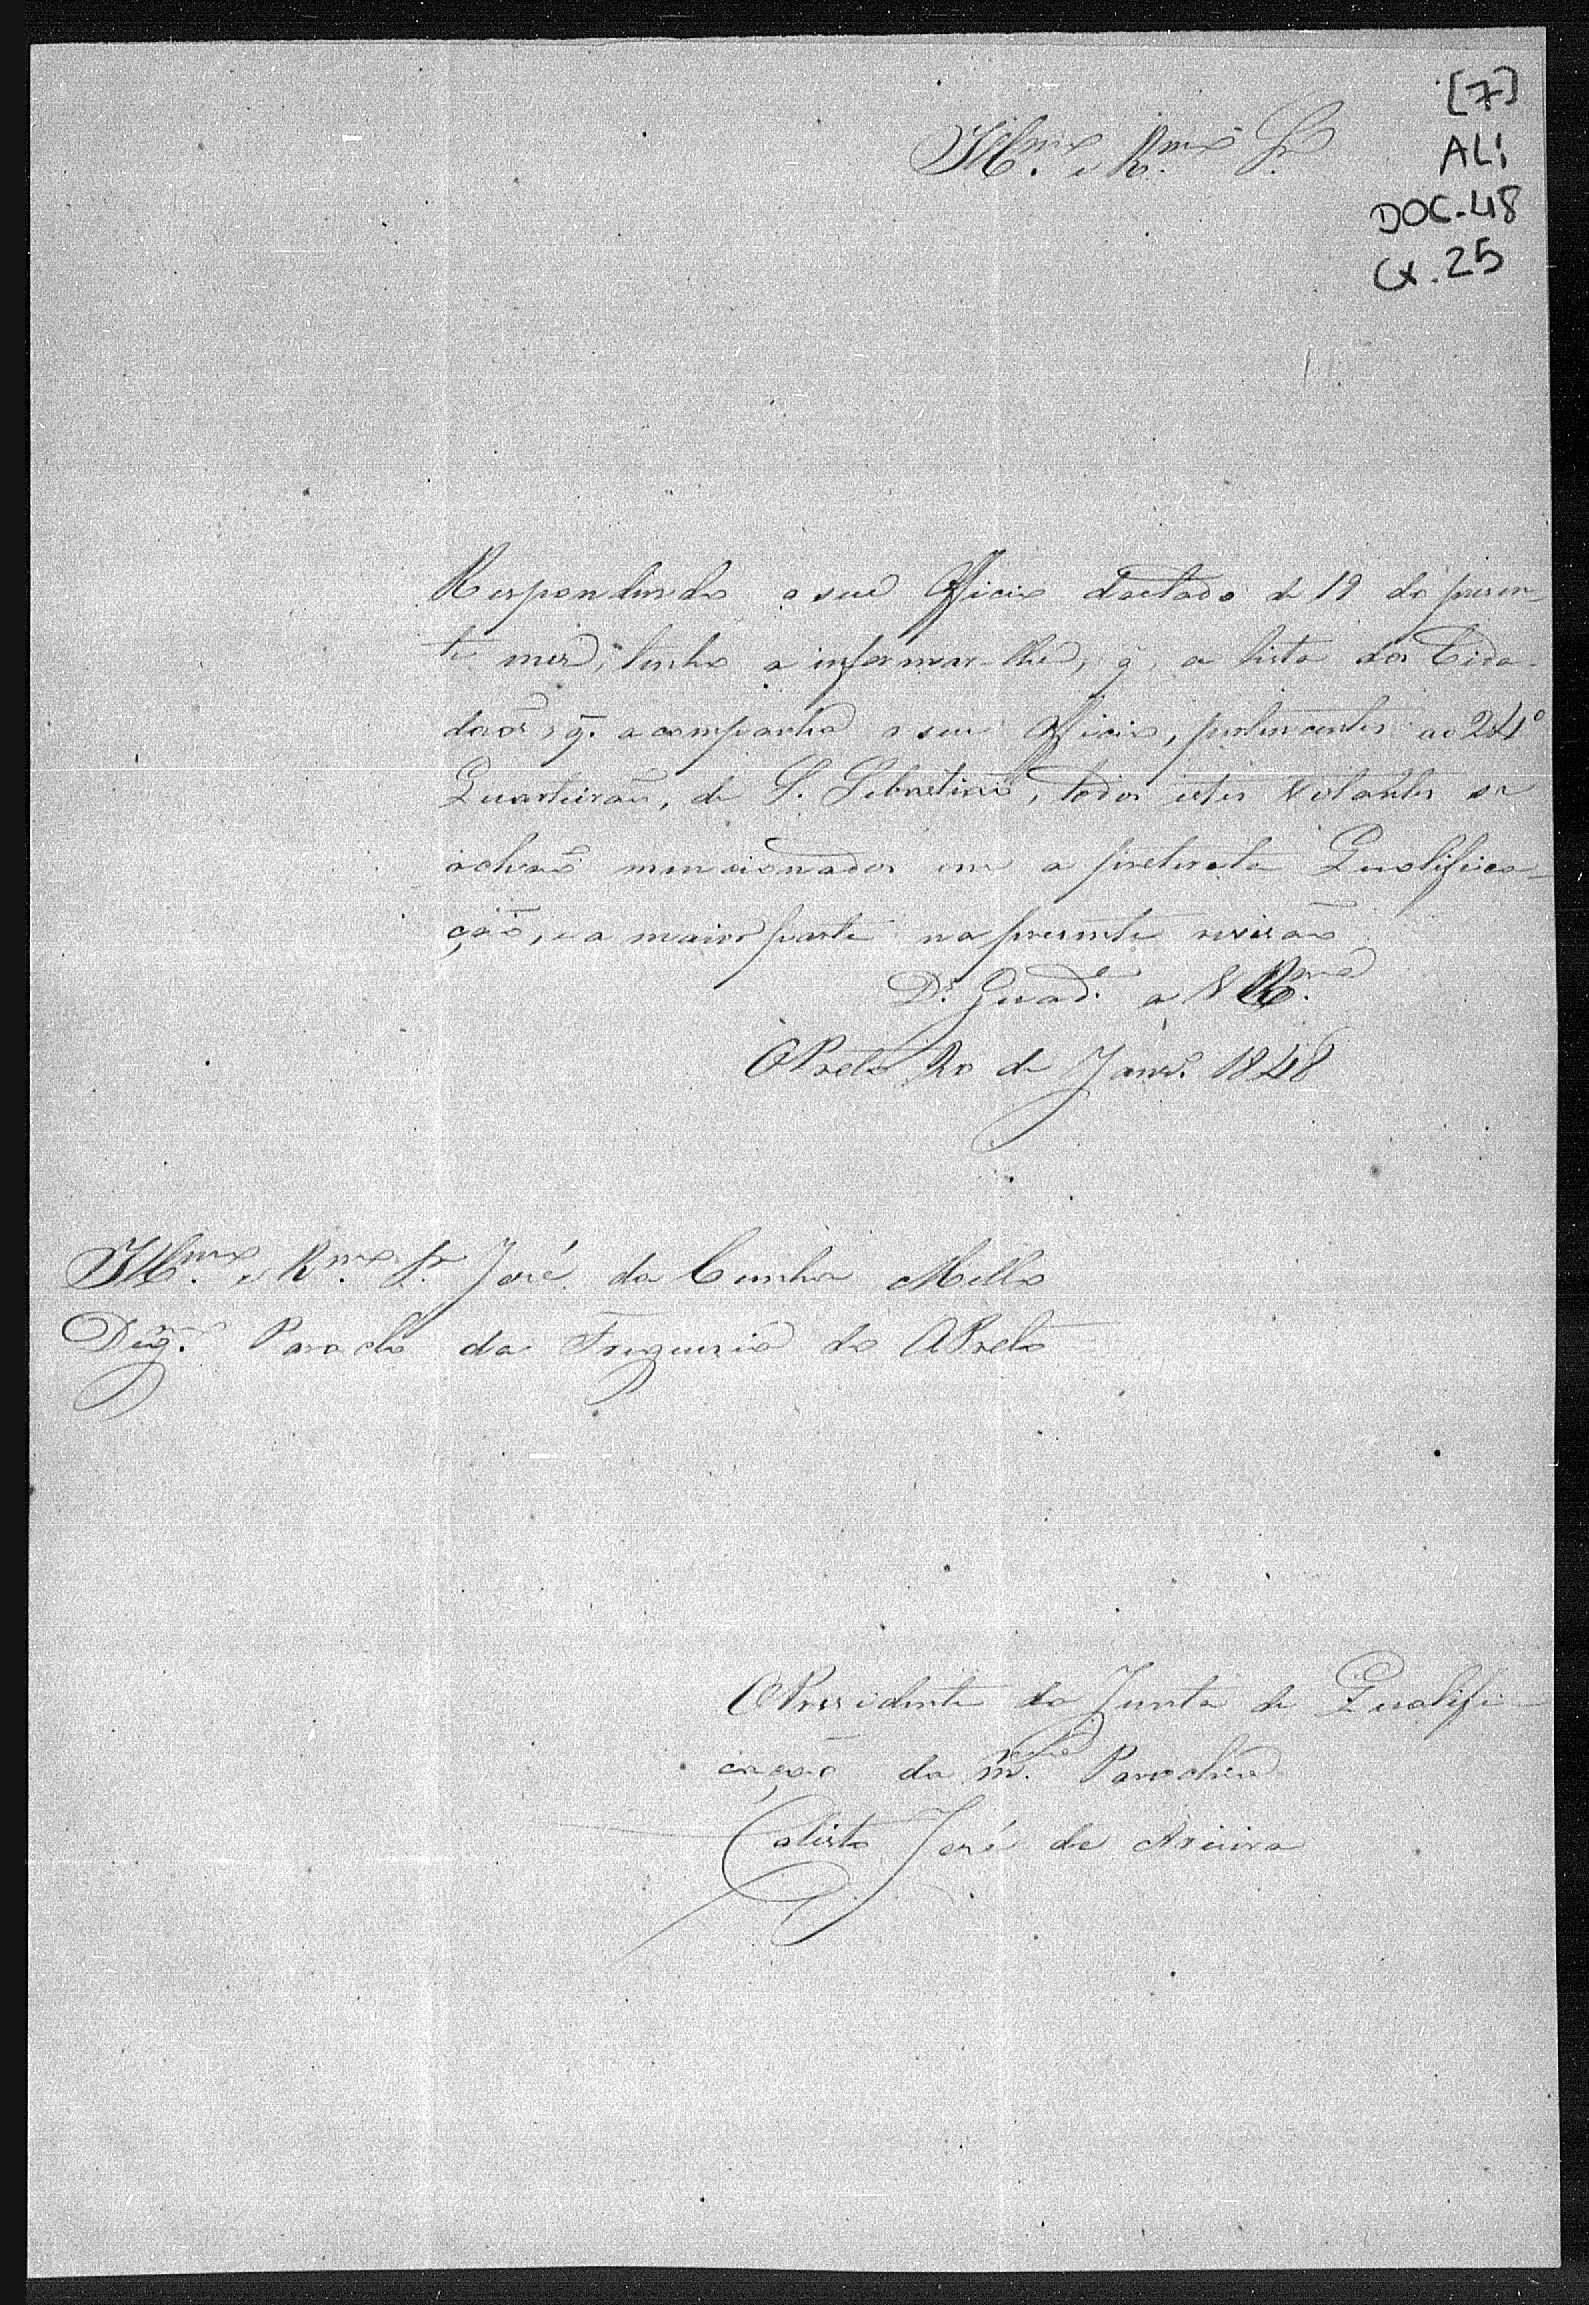 [7]
ALI
DOC. 48
Cx. 25
Illmo. e Rmo. Sr.
Respondendo o seu Officio dactado de 19 do presen-
te mes, tenho a informar-lhe, q. a lista dos Cida-
daõs, q. acompanha o seu Officio, pertencentes ao 24º
Quarteiraõ, de S. Sebastiaõ, todos estes Votantes se
achaõ mencionados em a preterita Qualifica-
çaõ, e a maior parte na presente revisaõ
Ds. Guade. a V Rma.
OPreto 20 de Janro. 1848
Illmo. e Rmo. Sr. José da Cunha Mello
Digmo. Parocho da Freguesia do OPreto
O Presidente da Junta de Qualifi-
caçaõ da mma. Parochia
Calisto José de